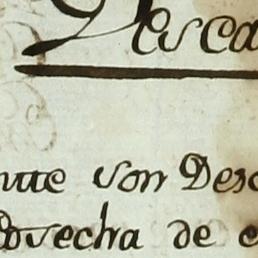 Desca
nte son Desc
cosecha de e